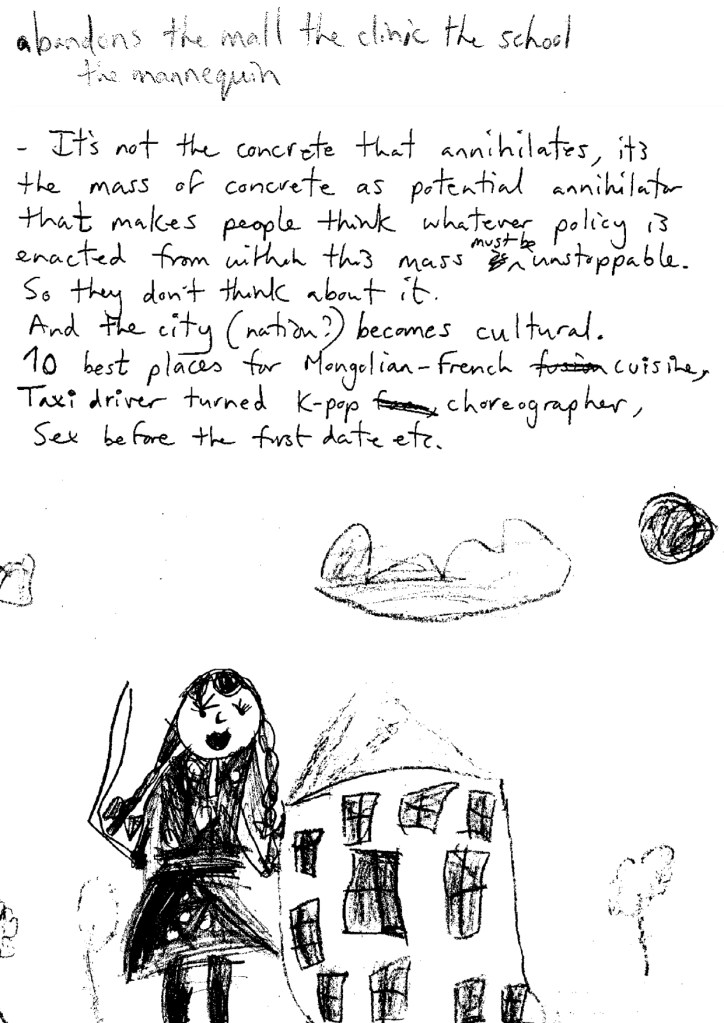 abandons the mall the clinic the school
the mannequin
- It's not the concrete that annihilates, it's
the mass of concrete as potential annihilator
that makes people think whatever policy is
enacted from within this mass must be unstoppable.
So they don't think about it.
And the city (nation?) becomes cultural.
10 best places for Mongolian-French fusion cuisine,
Taxi driver turned K-pop choreographer,
Sex before the first date etc.